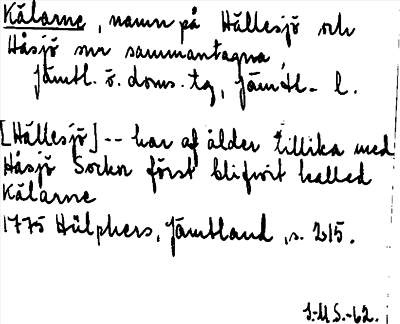 Kälarne, namn på Hällesjö och
Håsjö snr sammantagna,
Jämtl. ö. doms. tg, Jämtl. l.
[Hällesjö] -- har af ålder tillika med
Håsjö Sockn först blifwit kallad
Kälarne
1775 Hülphers, Jämtland, s. 215.
J-M S.-62.